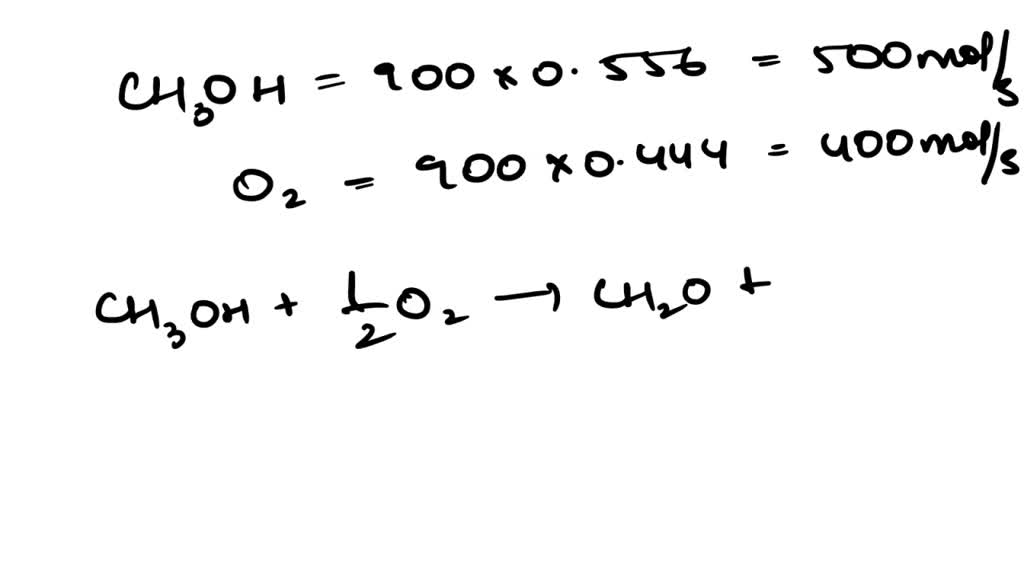 CH₃OH = 900 × 0.556 = 500 mol/s
O₂ = 900 × 0.444 = 400 mol/s
CH₃OH + 1/2 O₂ → CH₂O +